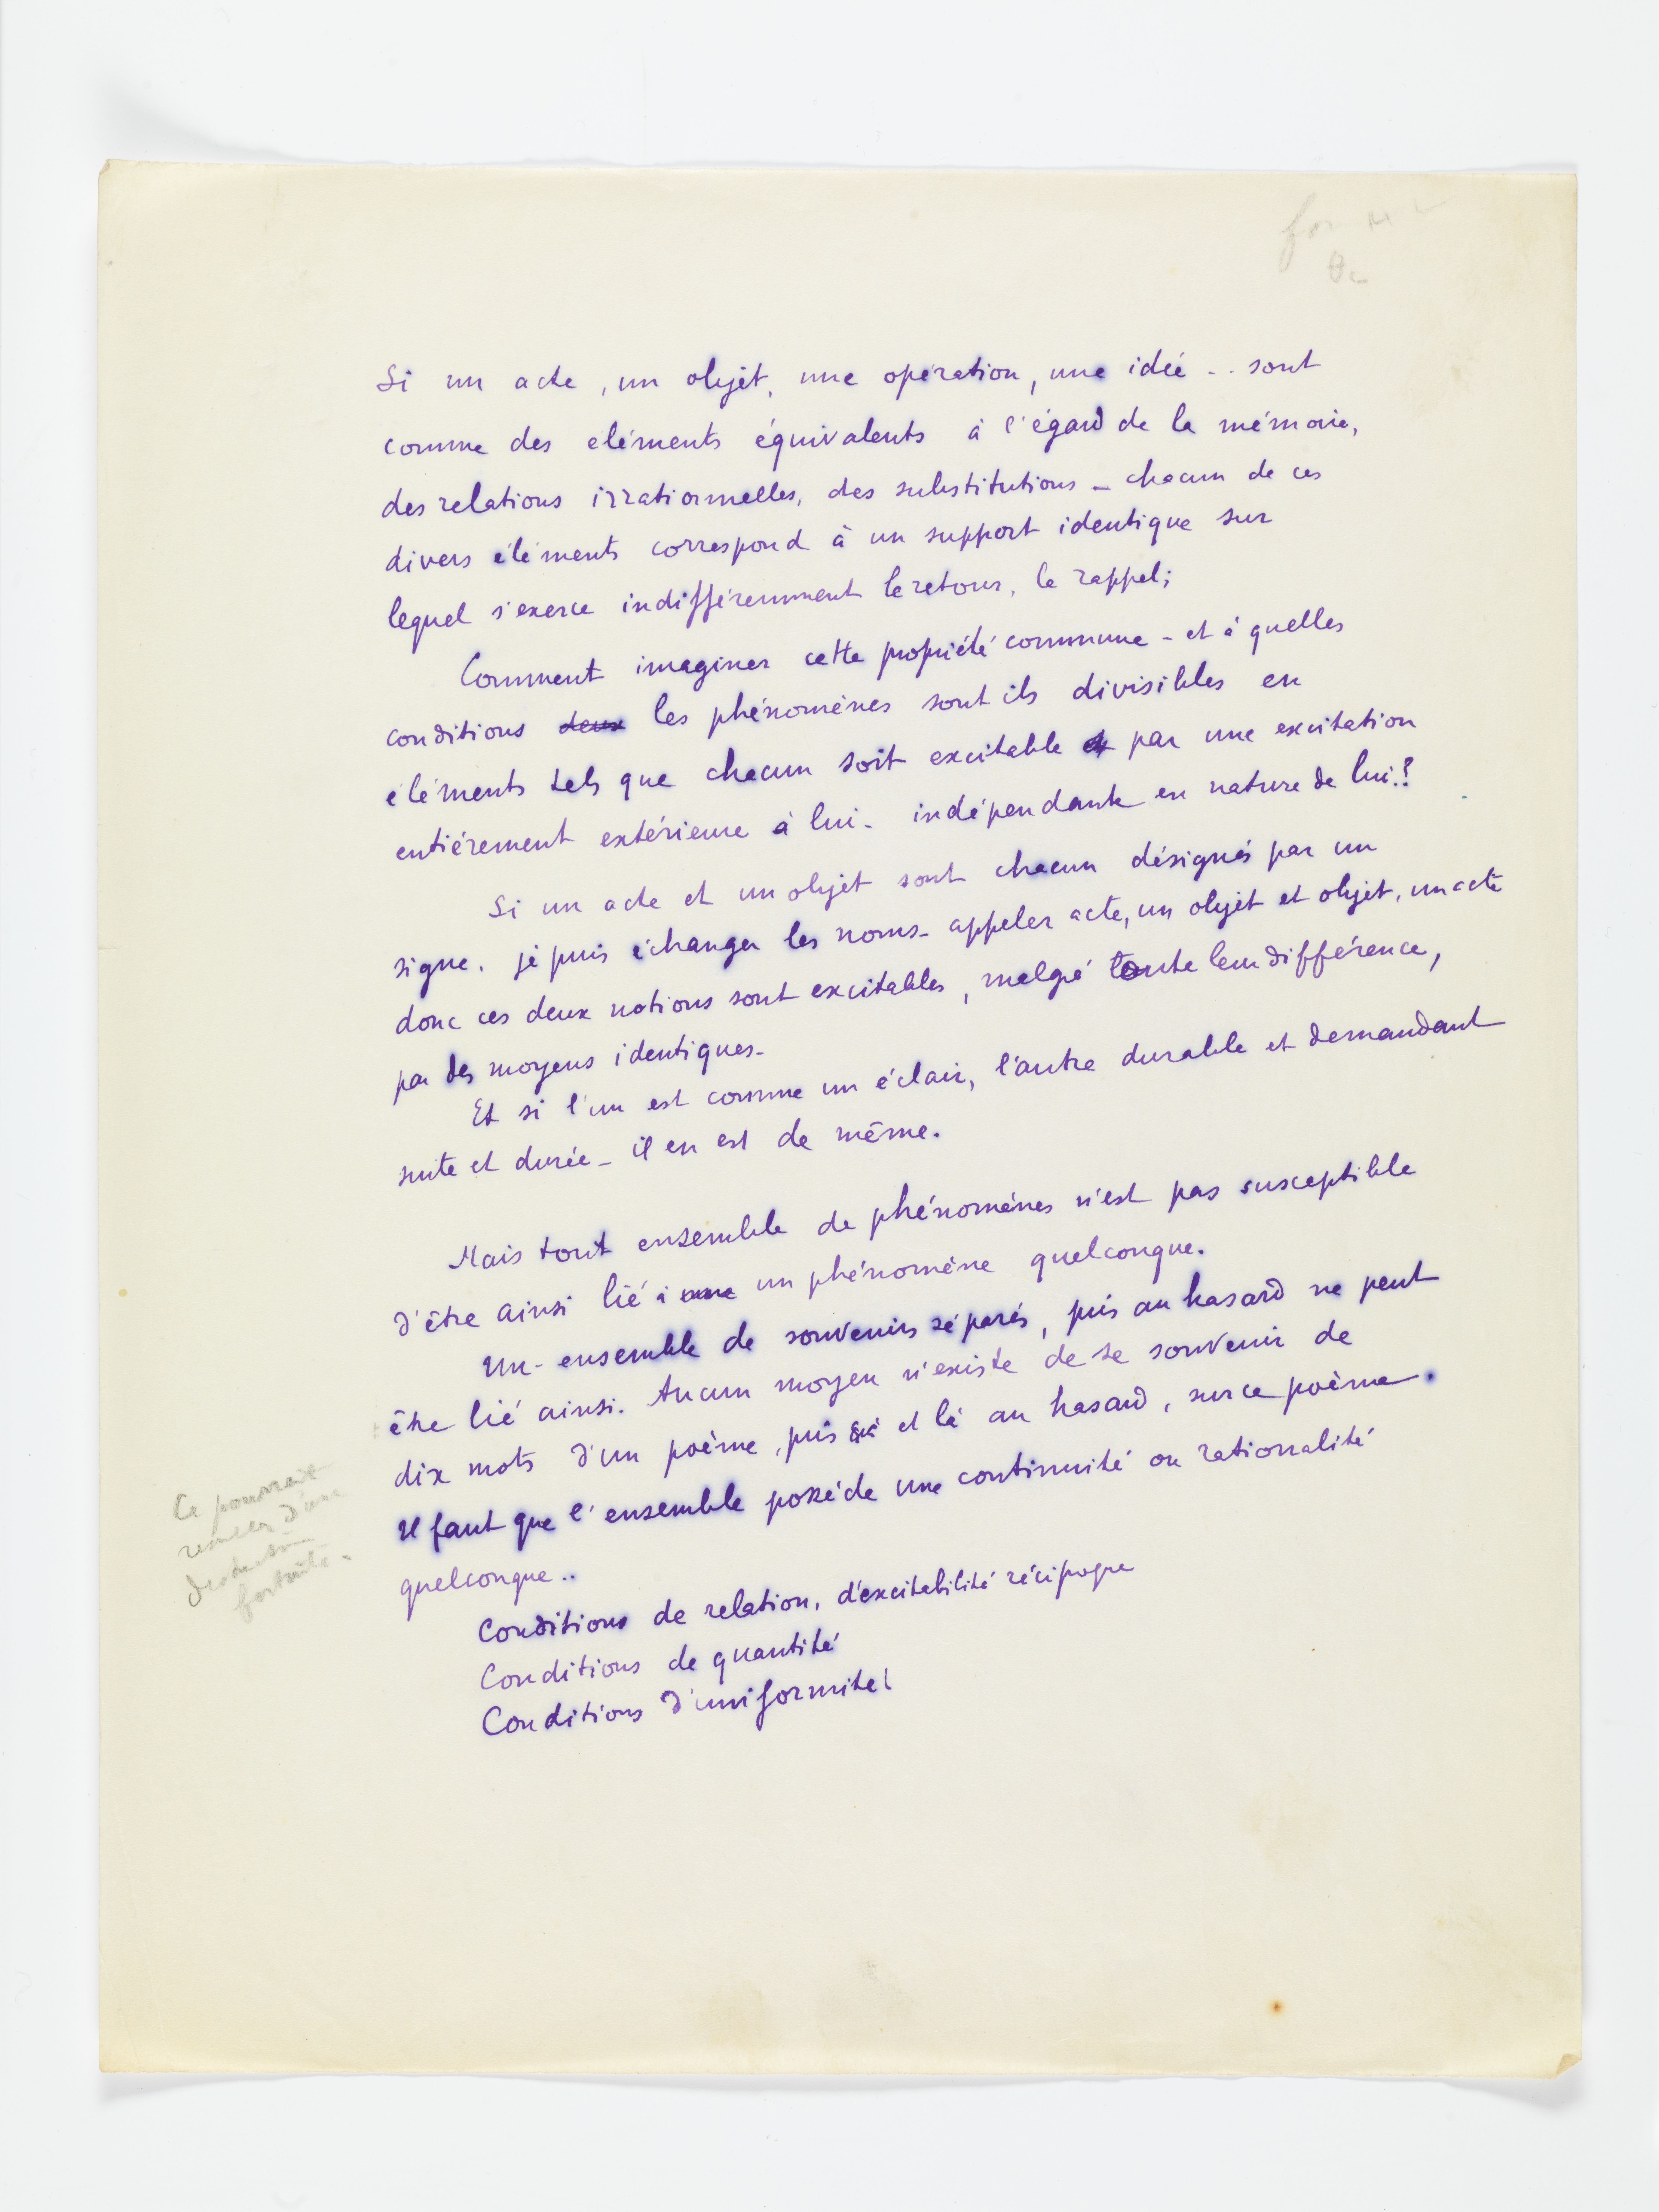 Si un acte, un objet, une opération, une idée .. sont
comme des eléments équivalents à l'égard de la mémoire,
des relations irrationnelles, des substitutions – chacun de ces
divers éléments correspond à un support identique sur
lequel s'exerce indifféremment le retour, le rappel;
Comment imaginer cette propriété commune – et à quelles
conditions deux les phénomènes sont ils divisibles en
éléments tels que chacun soit excitable par une excitation
entièrement extérieure à lui - indépendante en nature de lui.?
Si un acte et un objet sont chacun désignés par un
signe, je puis échanger les noms - appeler acte, un objet et objet, un acte
donc ces deux notions sont excitables, malgré toute leur différence,
par des moyens identiques -
Et si l'un est comme un éclair, l'autre durable et demandant
suite et durée – il en est de même.
Mais tout ensemble de phénomènes n'est pas susceptible
d'être ainsi lié à une un phénomène quelconque.
Un - ensemble de souvenirs séparés, pris au hasard ne peut
être lié ainsi. Aucun moyen n'existe de se souvenir de
dix mots d'un poème, pris çà et là au hasard, sur ce poème.
Il faut que l'ensemble possède une continuité ou rationalité
quelconque ..
Conditions de relation, d'excitabilité réciproque
Conditions de quantité
Conditions d'uniformité
Ce pourrait
d'une
fortuite -